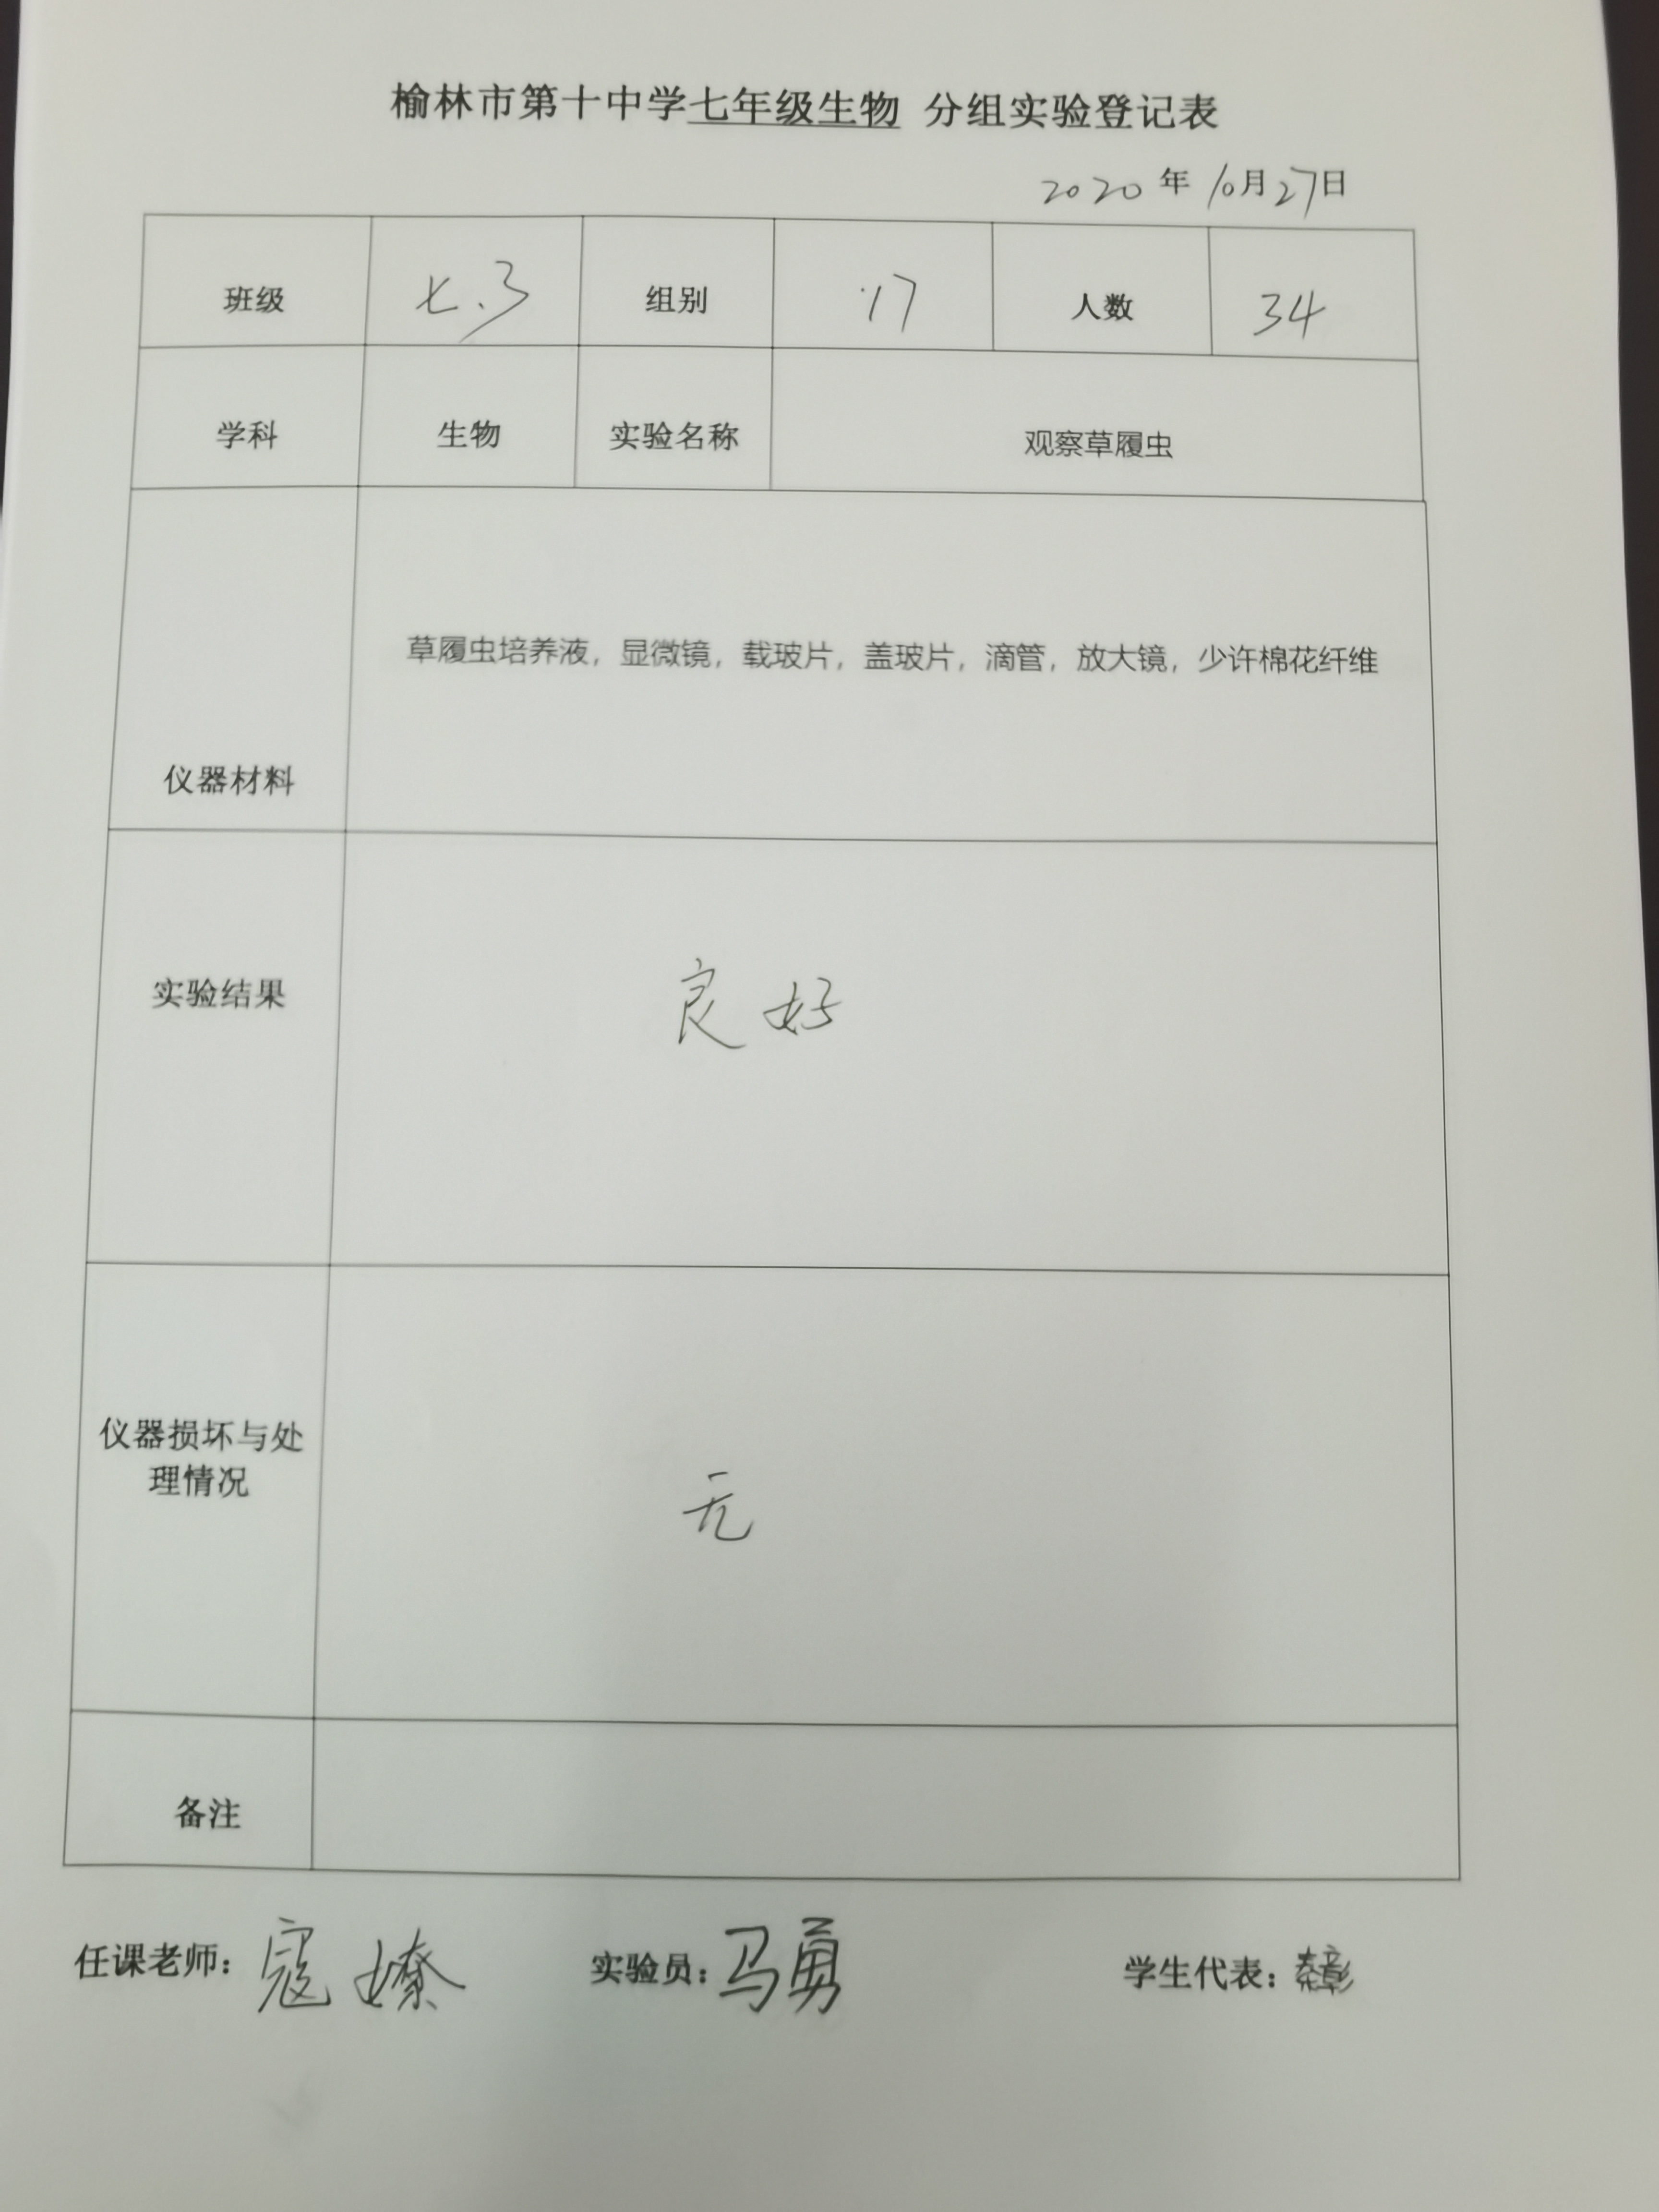 榆林市第十中学七年级生物 分组实验登记表
2020 年 10月27日
班级 七.3 组别 17 人数 34
学科 生物 实验名称 观察草履虫
草履虫培养液，显微镜，载玻片，盖玻片，滴管，放大镜，少许棉花纤维
仪器材料
实验结果 良好
仪器损坏与处
理情况
无
备注
任课老师：寇嫽 实验员：马勇 学生代表：